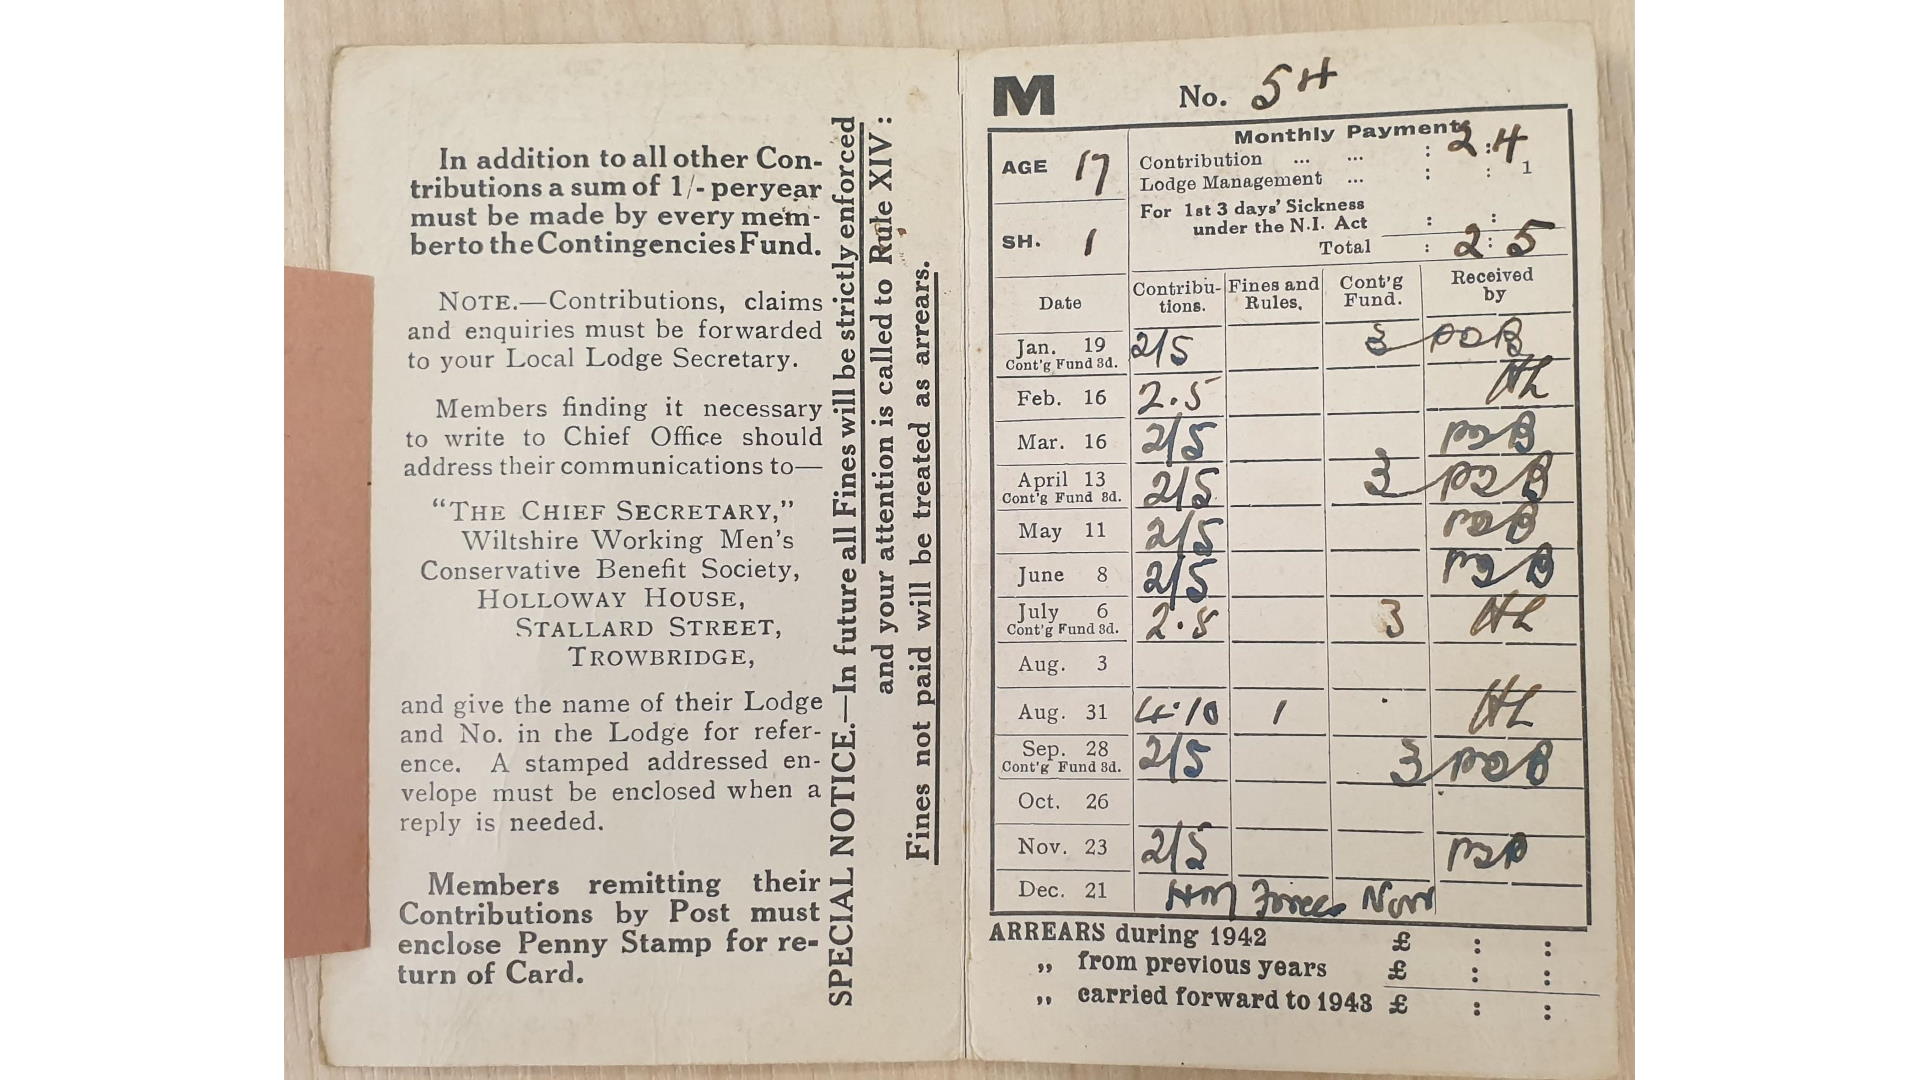 In addition to all other Con-
tributions a sum of 1/- peryear
must be made by every mem-
berto theContingenciesFund.
NOTE.—Contributions, claims
and enquiries must be forwarded
to your Local Lodge Secretary.
Members finding it necessary
to write to Chief Office should
address their communications to—
“THE CHIEF SECRETARY,”
Wiltshire Working Men's
Conservative Benefit Society,
HOLLOWAY HOUSE,
STALLARD STREET,
TROWBRIDGE,
and give the name of their Lodge
and No. in the Lodge for refer-
ence. A stamped addressed en-
velope must be enclosed when a
reply is needed.
Members remitting their
Contributions by Post must
enclose Penny Stamp for re-
turn of Card.
SPECIAL NOTICE.—In future all Fines will be strictly enforced
and your attention is called to Rule XIV:
Fines not paid will be treated as arrears.
M No. 54
AGE 17
SH. 1
Monthly Payments
Contribution ... ... : 2 : 4
Lodge Management ... : : 1
For 1st 3 days' Sickness
under the N.I. Act : :
Total : 2 : 5
Date Contribu-tions. Fines and Rules. Cont'g Fund. Received by
Jan. 19 2/5 3
Cont'g Fund 3d.
Feb. 16 2.5 HL
Mar. 16 2/5
April 13 2/5 3
Cont'g Fund 3d.
May 11 2/5
June 8 2/5
July 6 2.5 3 HL
Cont'g Fund 3d.
Aug. 3
Aug. 31 4.10 1 HL
Sep. 28 2/5 3
Cont'g Fund 3d.
Oct. 26
Nov. 23 2/5
Dec. 21 HM Forces Now
ARREARS during 1942 £ : :
„ from previous years £ : :
„ carried forward to 1943 £ : :